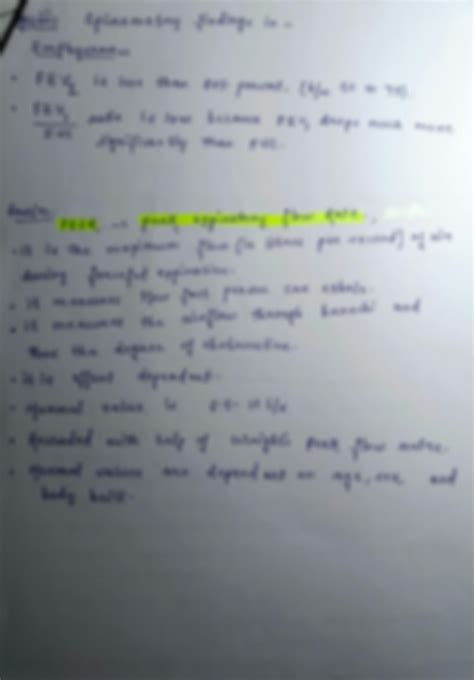 Spirometry findings in -
Emphysema -
• FEV1 is less than 80% (b/w
• FEV1 ratio is low because FEV1 drops much more
FVC significantly than FVC.
PEFR → peak expiratory flow rate.
- it is the maximum flow (in litres per second) of air
during forceful expiration.
- it measures how fast person can exhale.
• it measures the airflow through bronchi and
thus the degree of obstruction.
- it is effort dependent.
- normal value is
• Recorded with help of wright's peak flow metre.
• normal values are dependent on age, sex and
body built.